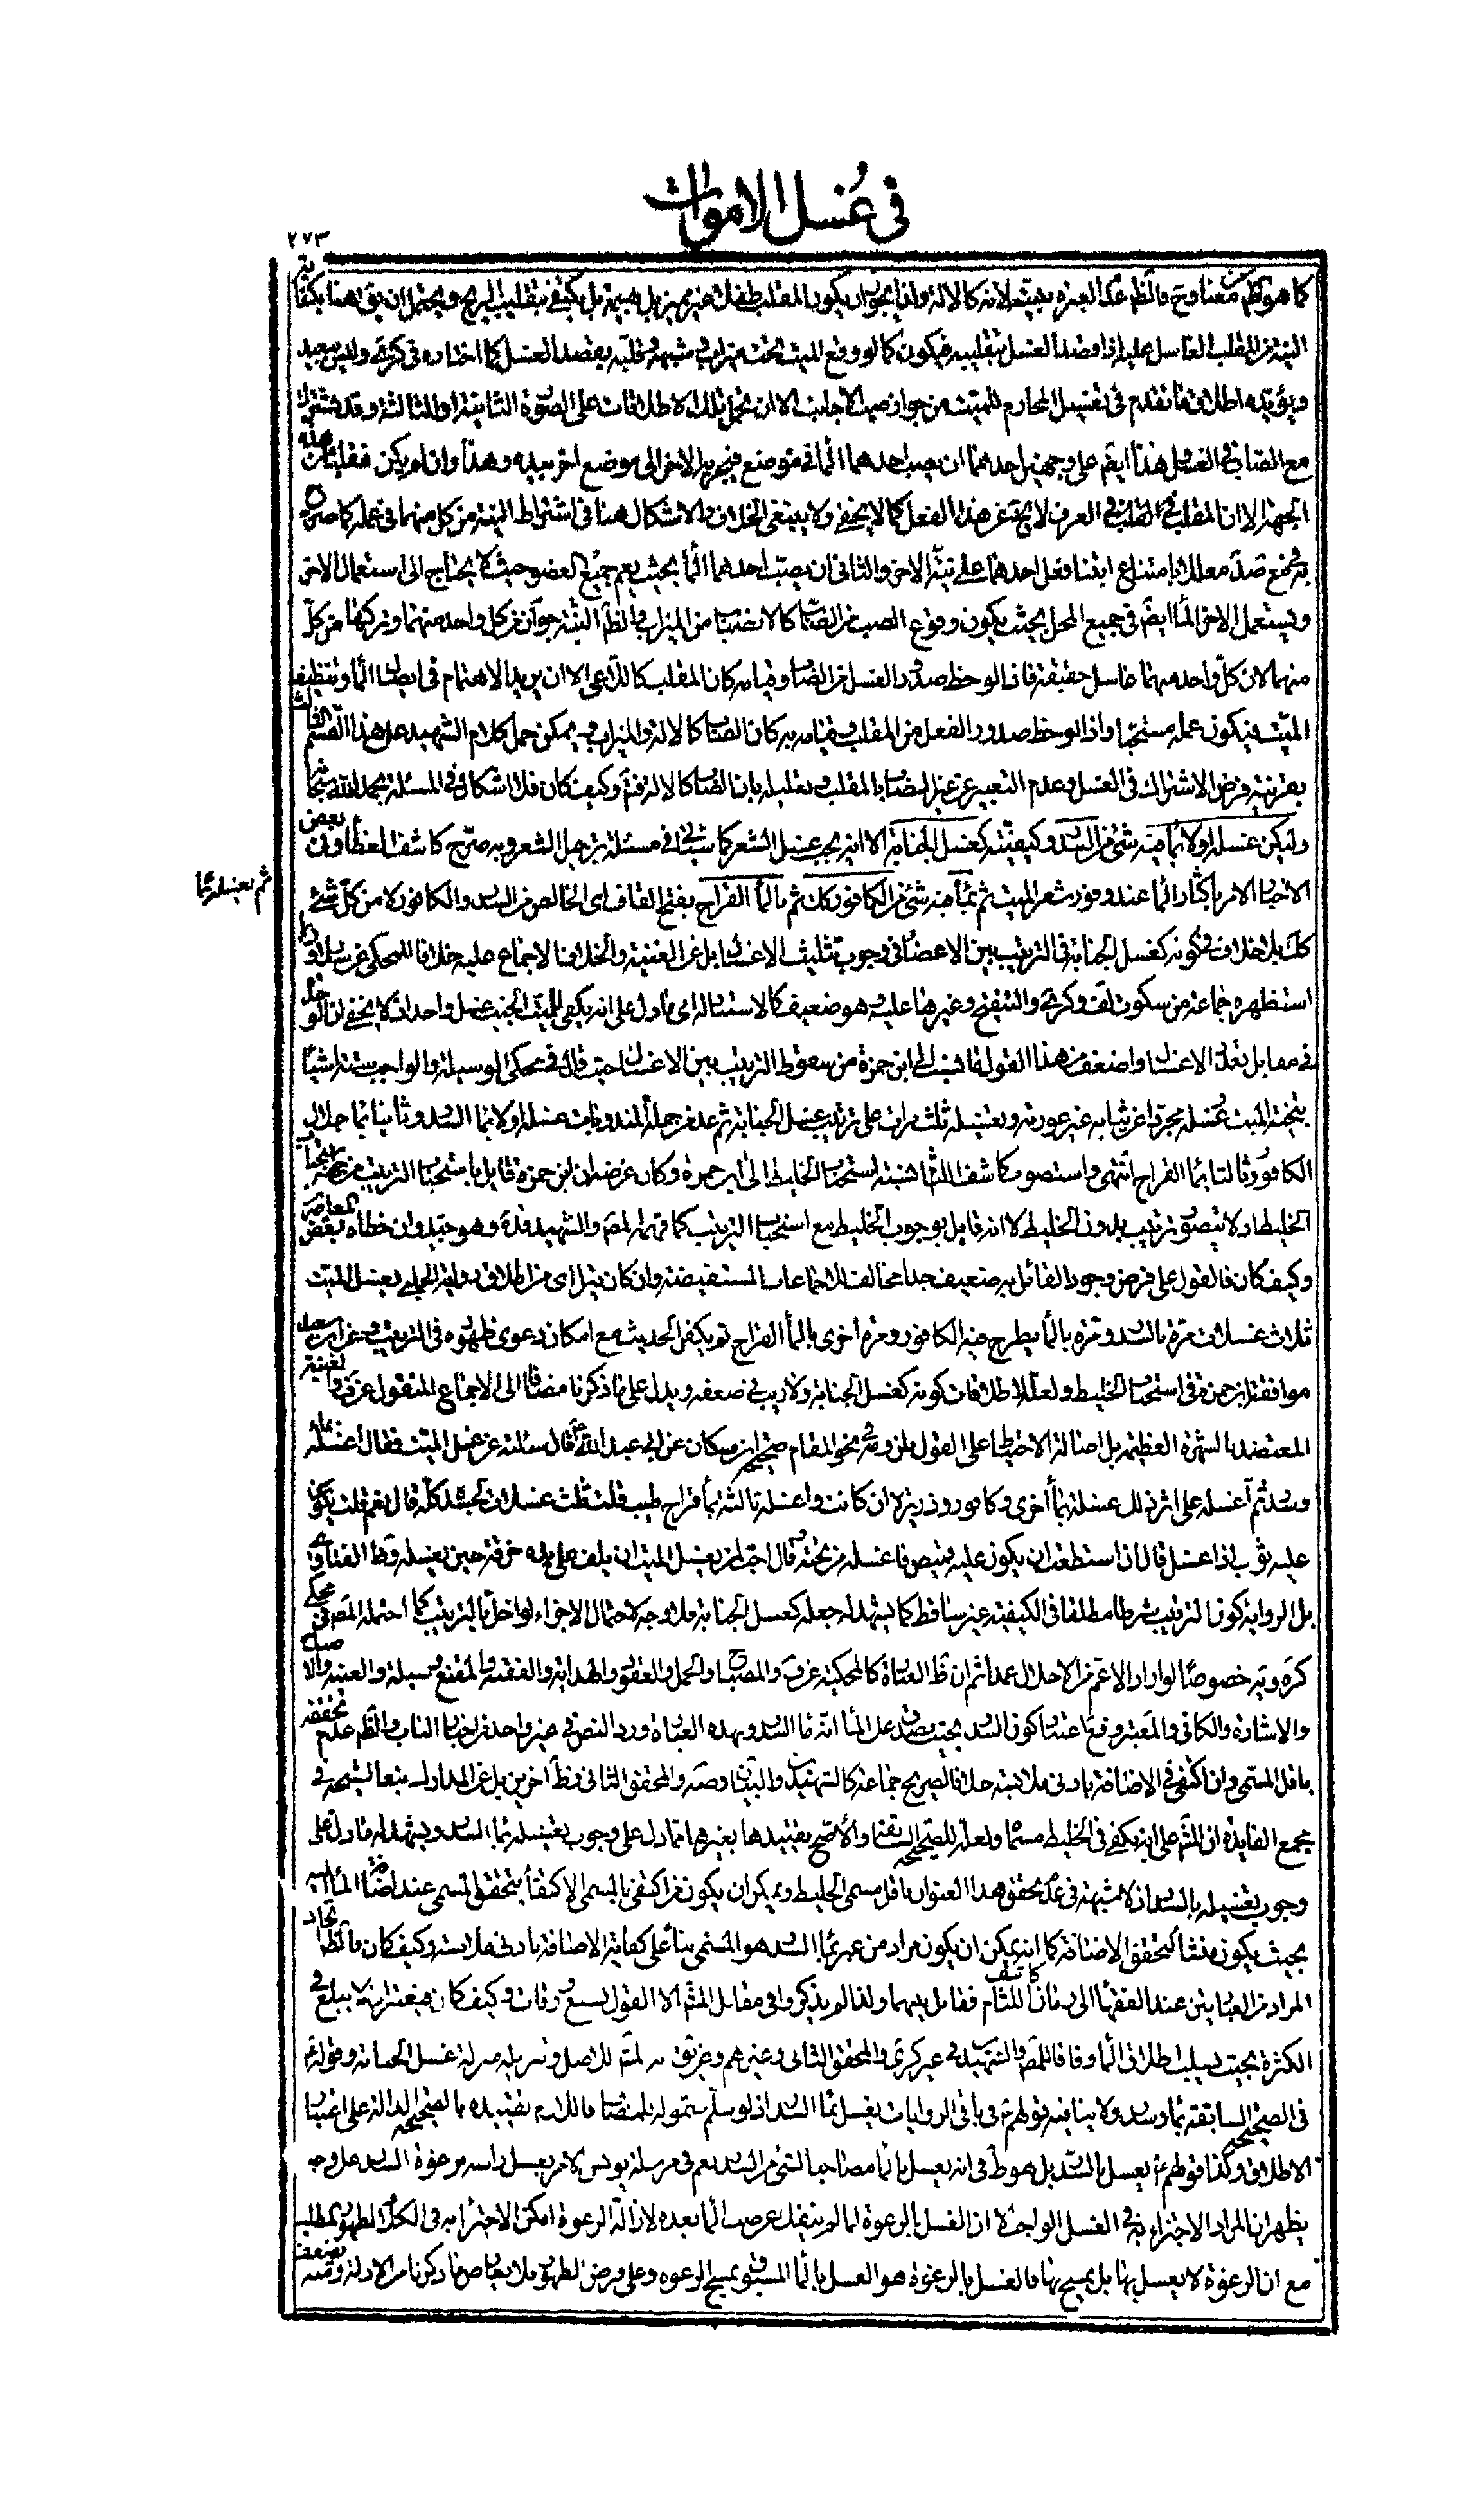 في غسل الاموات
٢٧٣
كما هو ظاهر معنا وح فالظم عدم العبرة بنيته لانه كالالة ولذا يجوز ان يكون المقلب طفلا غير مميز بل بهيمة بل يكتفى بتقليب الريح ويحتمل ان يق هنا بكفاية
النية من المقلب الغاسل عليه اذا قصد الغسل بتقليبه فيكون كما لو وقع الميت تحت ميزاب وشبهه وقلبه بقصد الغسل كما اختاره في كرى وليس ببعيد
ويؤيده اطلاق ما تقدم في تغسيل المحارم للميت من جواز صب الاجانب الا ان يحمل تلك الاطلاقات على الصورة الثانية او الثالثة وقد يشترك
مع الصاب في الغسل هذا ايضم على وجهين احدهما ان يصب احدهما الماء في موضع فيجريه الاخر الى موضع اخر بيده وهذا وان لم يكن مقلبا من هذه
الجهة الا ان المقلب في العرف لا يخ عن هذا الفعل كما لا يخفى ولا ينبغي الخلاف والاشكال هنا في اشتراط النية من كل منهما في عمله كما صرح
به في مع صد معللا بامتناع ابتناء فعل احدهما على نية الاخر والثاني ان يصب احدهما الماء بحيث يعم جميع العضو حيث لا يحتاج الى استعمال الاخر
ويستعمل الاخر الماء ايضم في جميع المحل بحيث يكون وقوع الصب من الصاب كالانصباب من الميزاب والظم النية جوازا من كل واحد منهما وتركها من كل
منهما لان كل واحد منهما غاسل حقيقة فاذا لوحظ صدور الغسل من الصاب وقيامه كان المقلب كالداعي الا ان يريد الاهتمام في ايصال الماء وتنظيف
الميت فيكون عمله مستحبا واذا لوحظ صدور الفعل من المقلب وقيامه به كان الصاب كالالة والميزاب وح يمكن حمل كلام الشهيد على هذا القسم الثالث
بقرينة فرض الاشتراك في الغسل وعدم التعبير عن غير الصاب بالمقلب وتعليله بان الصاب كالالة فتم وكيف كان فلا اشكال في المسئلة بحمد الله سبحانه
وليكن غسله اولا بماء فيه شئ من السدر وكيفيته كغسل الجنابة الا انه يجب غسل الشعر كما سيأتي في مسئلة ترجيل الشعر وبه صرح كاشف الغطاء وفي بعض
الاخبار الامر باكثار الماء عند وفور شعر الميت ثم بماء فيه شئ من الكافور كك ثم بالماء القراح بفتح القاف اي الخالص من السدر والكافور لا من كل شئ
ثم يغسله بماء
كك بلا خلاف في كونه كغسل الجنابة في الترتيب بين الاعضاء في وجوب تثليث الاغسال بل عن الغنية والخلاف الاجماع عليه خلافا للمحكي عن سلار
استظهره جماعة من سكون لف وكرى والتنقيح وغيرها عليه وهو ضعيف كالاستناد له الى ما دل على انه يكفي للميت الجنب غسل واحد اذ لا يخفى
في مقابل تعدد الاغسال واضعف من هذا القول ما نسب الى ابن حمزة من سقوط الترتيب بين الاغسال حيث قال في محكي الوسيلة والواجب ستة اشياء
تنحية الميت غسله مجردا عن ثيابه غير عورته وتغسيله ثلث مرات على ترتيب غسل الجنابة ثم عد من جملة المندوبات غسله اولا بماء السدر وثانيا بماء جلال
الكافور وثالثا بماء القراح انتهى واستصوب كاشف اللثام نسبة استحباب الخليط الى ابن حمزة وكان غرضه ان ابن حمزة قايل باستحباب الترتيب من جهة استحباب
الخليط اذ لا يتصور ترتيب بدون الخليط لا انه قايل بوجوب الخليط مع استحباب الترتيب كما فهمه المصم والشهيد قده وهو جيد وان خطاه بعض المعاصر
وكيف كان فالقول على فرض وجود القائل به ضعيف جدا مخالف للاجماعات المستفيضة وان كان يتراى من اطلاق رواية الحلبي يغسل الميت
ثلاث غسلات مرة بالسدر ومرة بالماء يطرح فيه الكافور ومرة اخرى بالماء القراح ثم يكفن الحديث مع امكان دعوى ظهوره في الترتيب وعن ابن سعيد
موافقة ابن حمزة في استحباب الخليط ولعله لاطلاقات كونه كغسل الجنابة ولا ريب في ضعفه ويدل على ما ذكرنا مضافا الى الاجماع المنقول عن ف والغنية
المعتضد بالشهرة العظيمة بل اصالة الاحتياط على القول بلزومه في نحو المقام صحيحة ابن مسكان عن ابي عبد الله ع قال سئلته عن غسل الميت فقال اغسله بماء
وسدر ثم اغسله على اثر ذلك غسلة بماء اخرى وكافور وذريرة ان كانت واغسله ثالثة بماء قراح طيب قلت ثلث غسلات لجسده كله قال نعم قلت يكون
عليه ثوب اذا غسل قال ان استطعت ان يكون عليه قميص فاغسله من تحته وقال احب لمن يغسل الميت ان يلف على يده خرقة حين يغسله وظ الفتاوى
بل الرواية كون الترتيب شرطا مطلقا في الكيفية غير ساقط كما يشهد له جعله كغسل الجنابة فلا وجه لاحتمال الاجزاء لو اخل بالترتيب كما احتمله المصم في محكي
كره وية خصوصا لو اراد الاعم من الاخلال عمدا ثم ان ظ العبارة كالمحكية عن ف والمصباح والجمل والعقود والهداية والفقيه والمقنع والوسيلة والغنية والاصباح
والاشارة والكافي والمعتبر وفع اعتبار كون السدر بحيث يصدق على الماء انه ماء السدر وبهذه العبارة ورد النص في غير واحد من اخبار الباب والظم عدم تحققه
باقل المسمى وان اكتفي في الاضافة بادنى ملابسة خلافا لصريح جماعة كالشهيدين والبيان وضه والمحقق الثاني وظ اخرين بل عن المدارك تبعا لشيخه في
مجمع الفايدة ان المشم على انه يكفي في الخليط مسماه ولعله للصحيحة السابقة والاصح تقييدها بغيرها مما دل على وجوب تغسيله بماء السدر ويشهد له ما دل على
وجوب تغسيله بالسدر اذ لا شبهة في عدم تحقق هذا العنوان باقل مسمى الخليط ويمكن ان يكون من اكتفى بالمسمى الاكتفاء بتحقق المسمى عند اضافة الماء اليه
بحيث يكون منشأ لتحقق الاضافة كما انه يمكن ان يكون مراد من عبر بماء السدر هو المسمى بناء على كفاية الاضافة بادنى ملابسة وكيف كان فالظم اتحاد
المراد من العبارتين عند الفقهاء الى زمان كاشف اللثام فقابل بينهما ولذا لم يذكروا في مقابل المشم الا القول بسبع ورقات وكيف كان فيعتبر ان لا يبلغ في
الكثرة بحيث يسلب اطلاق الماء وفاقا للمصم والشهيد في غير كرى والمحقق الثاني وغيرهم
في الصحيحة السابقة بماء وسدر ولا ينافيه قولهم ع في باقي الروايات يغسل بماء السدر اذ لو سلم شموله للمضاف فاللازم تقييده بالصحيحة الدالة على اعتبار
الاطلاق وكذا قولهم ع يغسل بالسدر بل هو ظ في انه يغسل بالماء مصاحبا لشئ من السدر نعم في مرسلة يونس الامر بغسل راسه برغوة السدر على وجه
يظهر ان المراد الاجتزاء به في الغسل الواجب الا ان الغسل بالرغوة لما لم ينفك عن صب الماء بعده لازالة الرغوة امكن الاجتزاء به في الكل لطهور مطلب
مع ان الرغوة لا يغسل بها بل يمسح بها فالغسل بالرغوة هو الغسل بالماء المسبوق بمسح الرغوة وعلى فرض الظهور فلا يعارض ما ذكرنا من الادلة ومنه يضعف